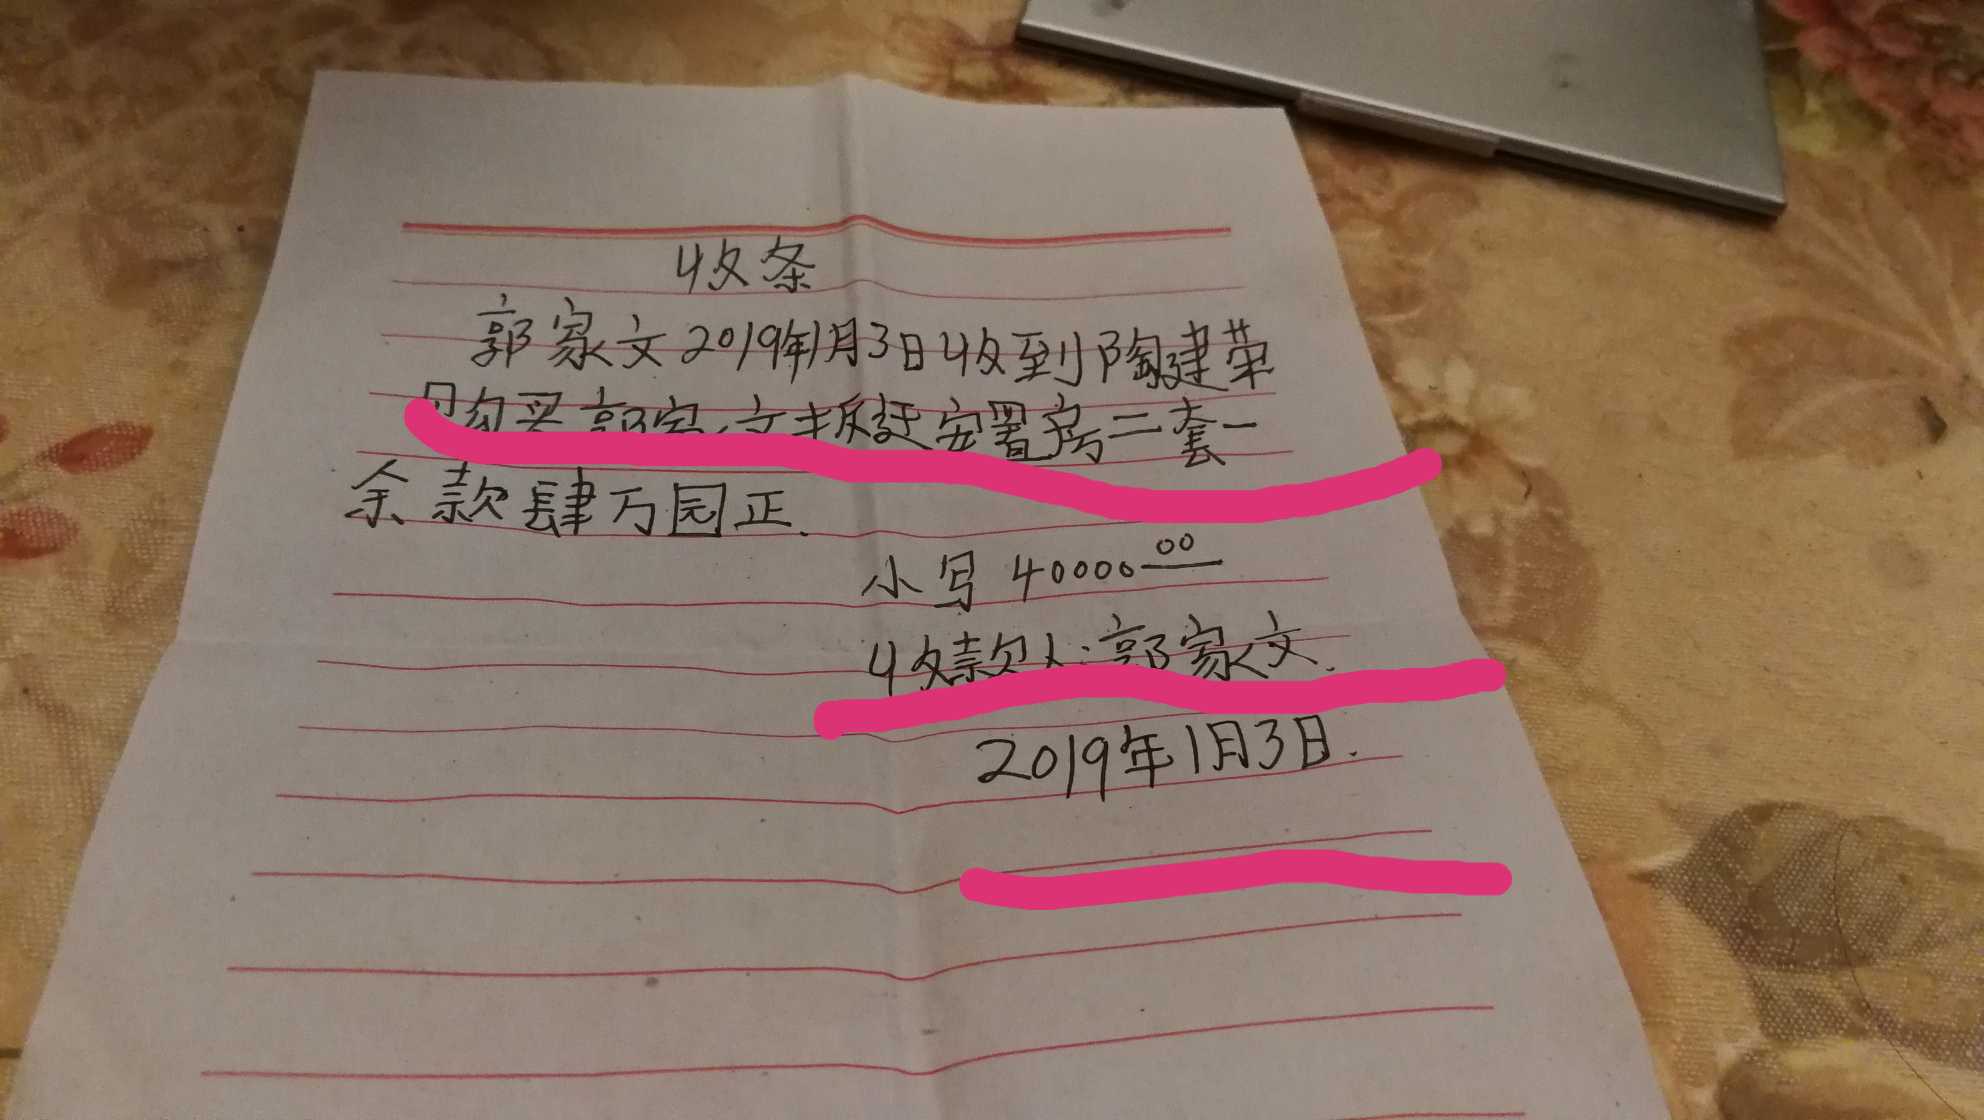 收条
郭家文2019年1月3日收到陶建荣
购买郭家文拆迁安置房二套一
余款肆万园正.
小写 40000.00
收款人:郭家文.
2019年1月3日.